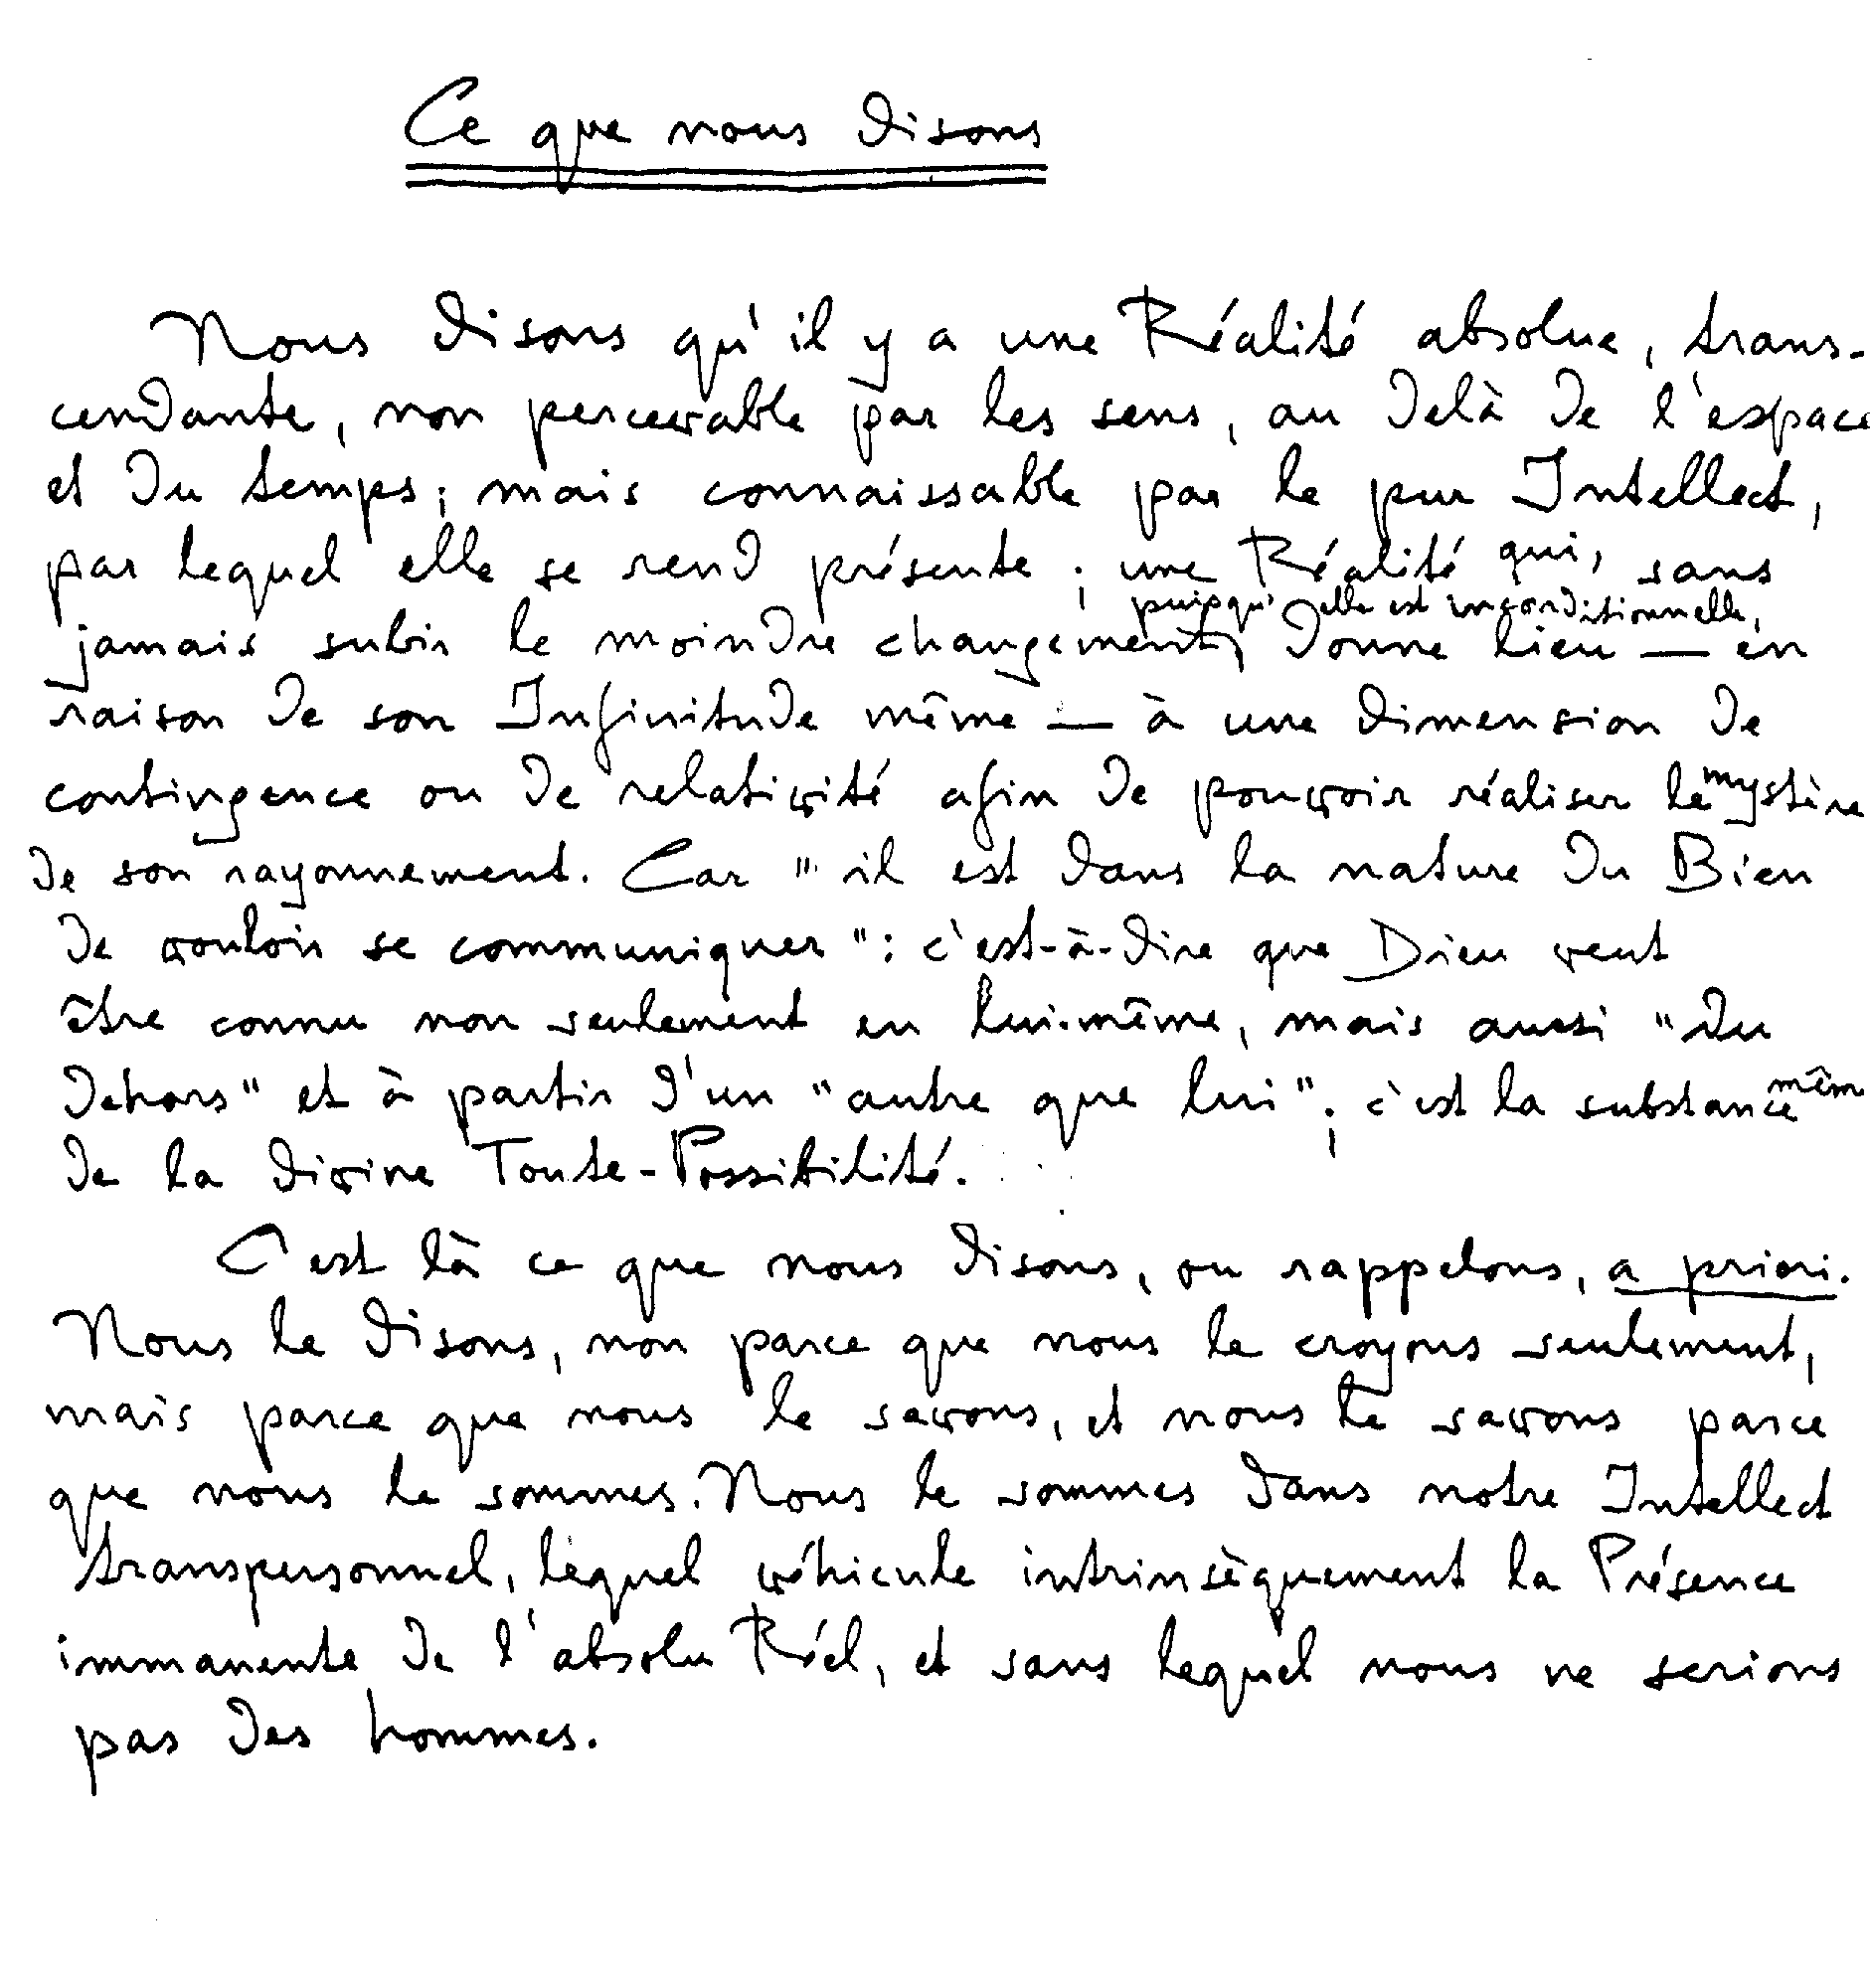 Ce que nous disons
Nous disons qu'il y a une Réalité absolue, trans-
cendante, non percevable par les sens, au delà de l'espace
et du temps; mais connaissable par le pur Intellect,
par lequel elle se rend présente; une Réalité qui, sans
puisqu'elle est inconditionnelle,
jamais subir le moindre changement, donne lieu — en
raison de son Infinitude même — à une dimension de
contingence ou de relativité afin de pouvoir réaliser le mystère
de son rayonnement. Car "il est dans la nature du Bien
de vouloir se communiquer": c'est-à-dire que Dieu veut
être connu non seulement en lui-même, mais aussi "du
dehors" et à partir d'un "autre que lui"; c'est la substance mêm
de la divine Toute-Possibilité.
C'est là ce que nous disons, ou rappelons, a priori.
Nous le disons, non parce que nous le croyons seulement,
mais parce que nous le savons, et nous le savons parce
que nous le sommes. Nous le sommes dans notre Intellect
transpersonnel, lequel véhicule intrinsèquement la Présence
immanente de l'absolu Réel, et sans lequel nous ne serions
pas des hommes.